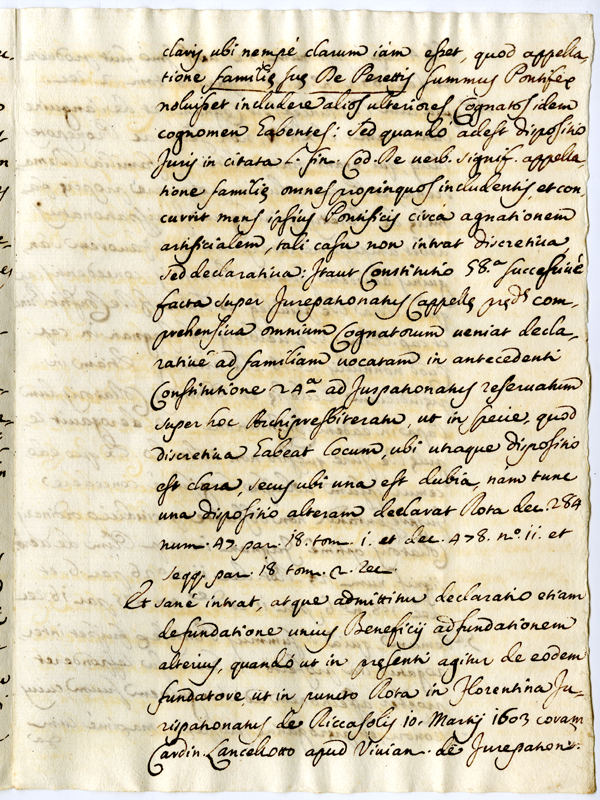 claris, ubi nempé clarum iám esset, quod appella,
tione familię suę De Perettis summus Pontifex
noluisset includere alios ulteriores Cognatos idem
cognomen habentes: sed quando adest dispositio
Juris in citata l. fin. Cod. De verb. signif. appella,
tione familię omnes propinquos includentis, et con,
currit mens ipsius Pontificis circa agnationem
artificialem, tali casu non intrat discretiua,
sed declaratiua: Itaut Constitutio 58.a successiué
facta super Jurepatronatus Cappellę pręd.s com,
prehensiua omnium Cognatorum ueniat decla,
ratiué ad familiam uocatam in antecedenti
Constitutione 24.a ad Juspatronatus reseruatum
super hoc Archipresbiteratu, ut in specie, quod
discretiua habeat locum, ubi utraque dispositio
est clara, secus ubi una est dubia, nam tunc
una dispositio alteram declarat Rota dec. 284
num. 47. par. 18. tom. 1. et dec. 478. n.o 11. et
seqq. par. 18 tom. 2. rec.
Et sané intrat, atque admittitur declaratio etiam
de fundatione unius Beneficij ad fundationem
alterius, quandó ut in pręsenti agitur de eodem
fundatore, ut in puncto Rota in Florentina Ju,
rispatronatus de Riccasolis 10. Martij 1603 coram
Cardin. Lancellotto apud Vivian. de Jurepatron.